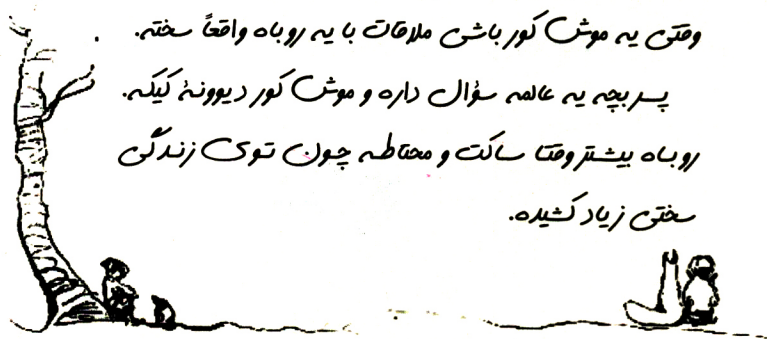 وقتی یه موش کور باشی ملاقات با یه روباه واقعاً سخته.
پسر بچه یه عالمه سؤال داره و موش کور دیوونهٔ کیکه.
روباه بیشتر وقتا ساکت و محتاطه چون توی زندگی
سختی زیاد کشیده.